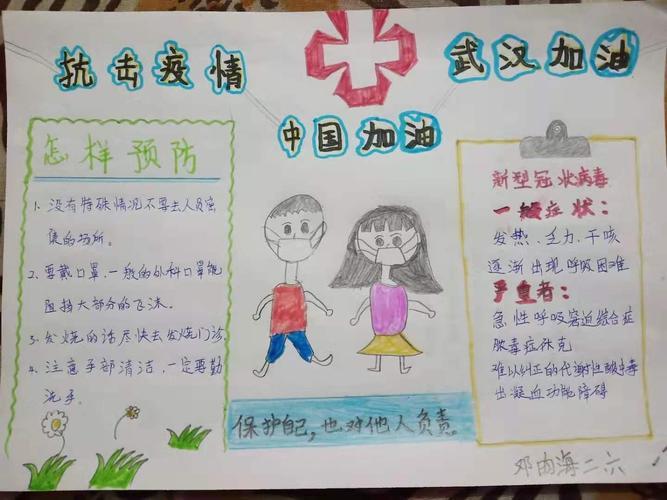 抗击疫情
武汉加油
中国加油
怎样预防
1、没有特殊情况不要去人员密
集的场所。
2、要戴口罩,一般的外科口罩能
阻挡大部分的飞沫。
3、发烧的话尽快去发烧门诊
4、注意手部清洁,一定要勤
洗手。
保护自己,也对他人负责。
新型冠状病毒
一般症状:
发热、乏力、干咳
逐渐出现呼吸困难
严重者:
急性呼吸窘迫综合症
脓毒症休克
难以纠正的代谢性酸中毒
出凝血功能障碍
邓 海二六